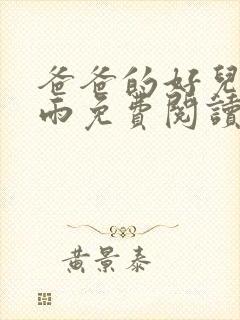 爸爸的好兒
雨免費閱讀
黃景泰